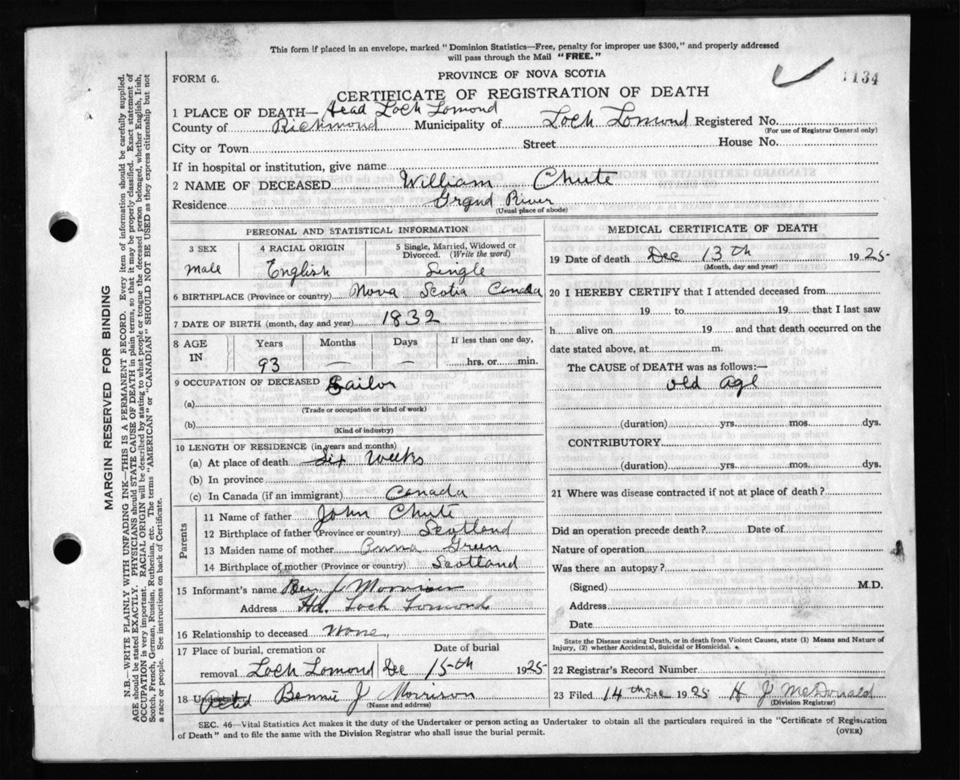 This form if placed in an envelope, marked "Dominion Statistics—Free, penalty for improper use $300," and properly addressed
will pass through the Mail "FREE."
FORM 6.
PROVINCE OF NOVA SCOTIA
1134
CERTIFICATE OF REGISTRATION OF DEATH
1 PLACE OF DEATH— Head Loch Lomond
County of Richmond Municipality of Loch Lomond Registered No.
(For use of Registrar General only)
City or Town Street House No.
If in hospital or institution, give name
2 NAME OF DECEASED William Chute
Residence Grand River
(Usual place of abode)
PERSONAL AND STATISTICAL INFORMATION
3 SEX 4 RACIAL ORIGIN 5 Single, Married, Widowed or Divorced. (Write the word)
Male English Single
6 BIRTHPLACE (Province or country) Nova Scotia Canada
7 DATE OF BIRTH (month, day and year) 1832
8 AGE IN Years Months Days If less than one day,
93 — — hrs. or min.
9 OCCUPATION OF DECEASED Sailor
(a)
(Trade or occupation or kind of work)
(b)
(Kind of industry)
10 LENGTH OF RESIDENCE (in years and months)
(a) At place of death Six Weeks
(b) In province
(c) In Canada (if an immigrant) Canada
Parents
11 Name of father John Chute
12 Birthplace of father (Province or country) Scotland
13 Maiden name of mother Anna Green
14 Birthplace of mother (Province or country) Scotland
15 Informant's name Ben J Morrison
Address Hd. Loch Lomond
16 Relationship to deceased None
17 Place of burial, cremation or removal Date of burial
Loch Lomond Dec 15th 1925
18 Acted Bennie J Morrison
(Name and address)
MEDICAL CERTIFICATE OF DEATH
19 Date of death Dec 13th 1925
(Month, day and year)
20 I HEREBY CERTIFY that I attended deceased from
19 to 19 that I last saw
h alive on 19 and that death occurred on the
date stated above, at m.
The CAUSE of DEATH was as follows:—
old age
(duration) yrs. mos. dys.
CONTRIBUTORY
(duration) yrs. mos. dys.
21 Where was disease contracted if not at place of death?
Did an operation precede death? Date of
Nature of operation
Was there an autopsy?
(Signed) M.D.
Address
Date
State the Disease causing Death, or in death from Violent Causes, state (1) Means and Nature of
Injury, (2) whether Accidental, Suicidal or Homicidal.
22 Registrar's Record Number
23 Filed 14th Dec 1925 H J McDonald
(Division Registrar)
SEC. 46—Vital Statistics Act makes it the duty of the Undertaker or person acting as Undertaker to obtain all the particulars required in the "Certificate of Registration
of Death" and to file the same with the Division Registrar who shall issue the burial permit.
(OVER)
MARGIN RESERVED FOR BINDING
N.B.—WRITE PLAINLY WITH UNFADING INK—THIS IS A PERMANENT RECORD. Every item of information should be carefully supplied.
AGE should be stated EXACTLY. PHYSICIANS should STATE CAUSE OF DEATH in plain terms, so that it may be properly classified. Exact statement of
OCCUPATION is very important. RACIAL ORIGIN will be described by stating to what people or tongue the deceased person belonged, whether English, Irish,
Scotch, French, German, Russian, Ruthenian, etc. The terms "AMERICAN" or "CANADIAN" SHOULD NOT BE USED as they express citizenship but not
a race or people. See instructions on back of Certificate.